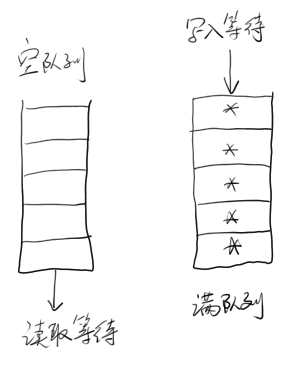 空队列
读取等待
写入等待
满队列